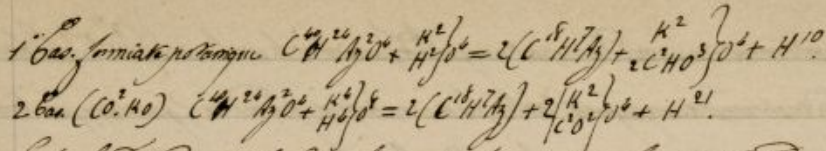 1er Cas. formiate potassique C40H24Az2O4 + K2 H2}O4 = 2(C18H7Az) + K2 2C2HO3}O4 + H10.
2 Cas. (CO2KO) C40H24Az2O4 + K6 H6}O8 = 2(C18H7Az) + 2(K2 C2O2}O4 + H21.